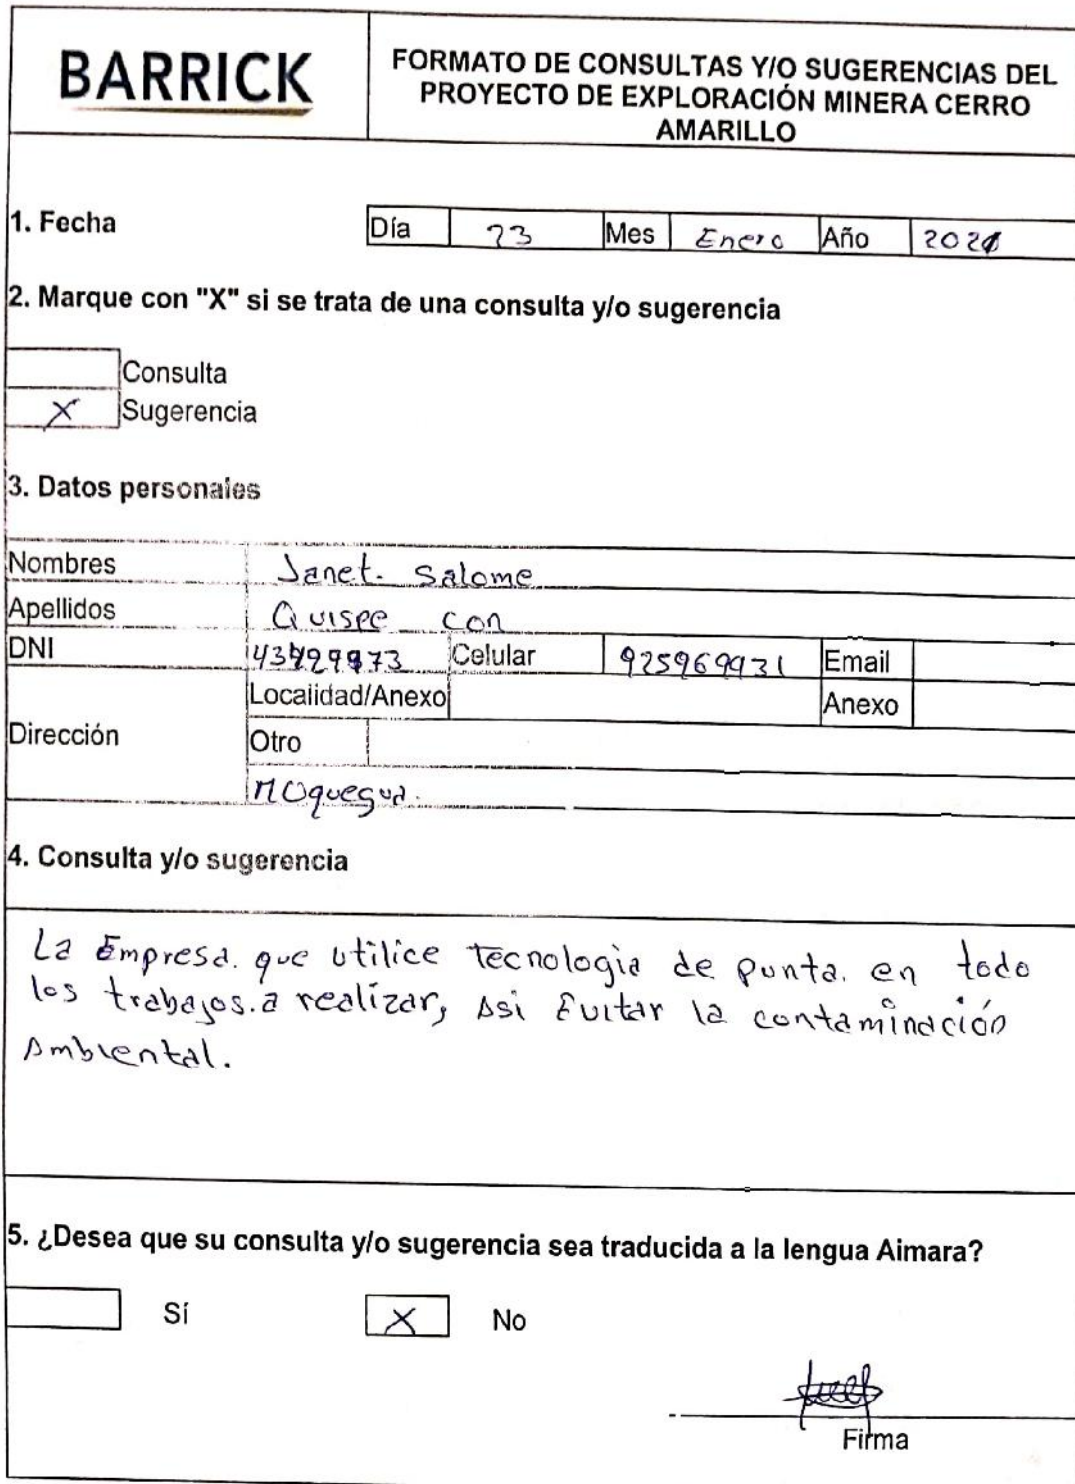 BARRICK
FORMATO DE CONSULTAS Y/O SUGERENCIAS DEL
PROYECTO DE EXPLORACIÓN MINERA CERRO
AMARILLO
1. Fecha
Día 23 Mes Enero Año 2021
2. Marque con "X" si se trata de una consulta y/o sugerencia
Consulta
X Sugerencia
3. Datos personales
Nombres Janet. Salome
Apellidos Quispe con
DNI Celular 925969931 Email
Localidad/Anexo Anexo
Dirección Otro
Moquegua.
4. Consulta y/o sugerencia
La Empresa. que utilice tecnologia de punta. en todo
los trabajos. a realizar, Asi Evitar la contaminación
Ambiental.
5. ¿Desea que su consulta y/o sugerencia sea traducida a la lengua Aimara?
Sí X No
Firma